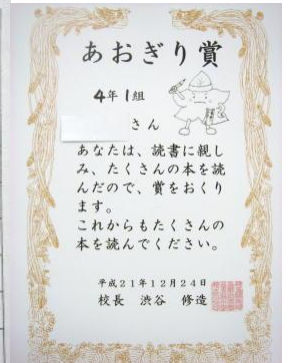 あおぎり賞
4年1組
さん
あなたは、読書に親し
み、たくさんの本を読
んだので、賞をおくり
ます。
これからもたくさんの
本を読んでください。
平成21年12月24日
校長 渋谷 修造